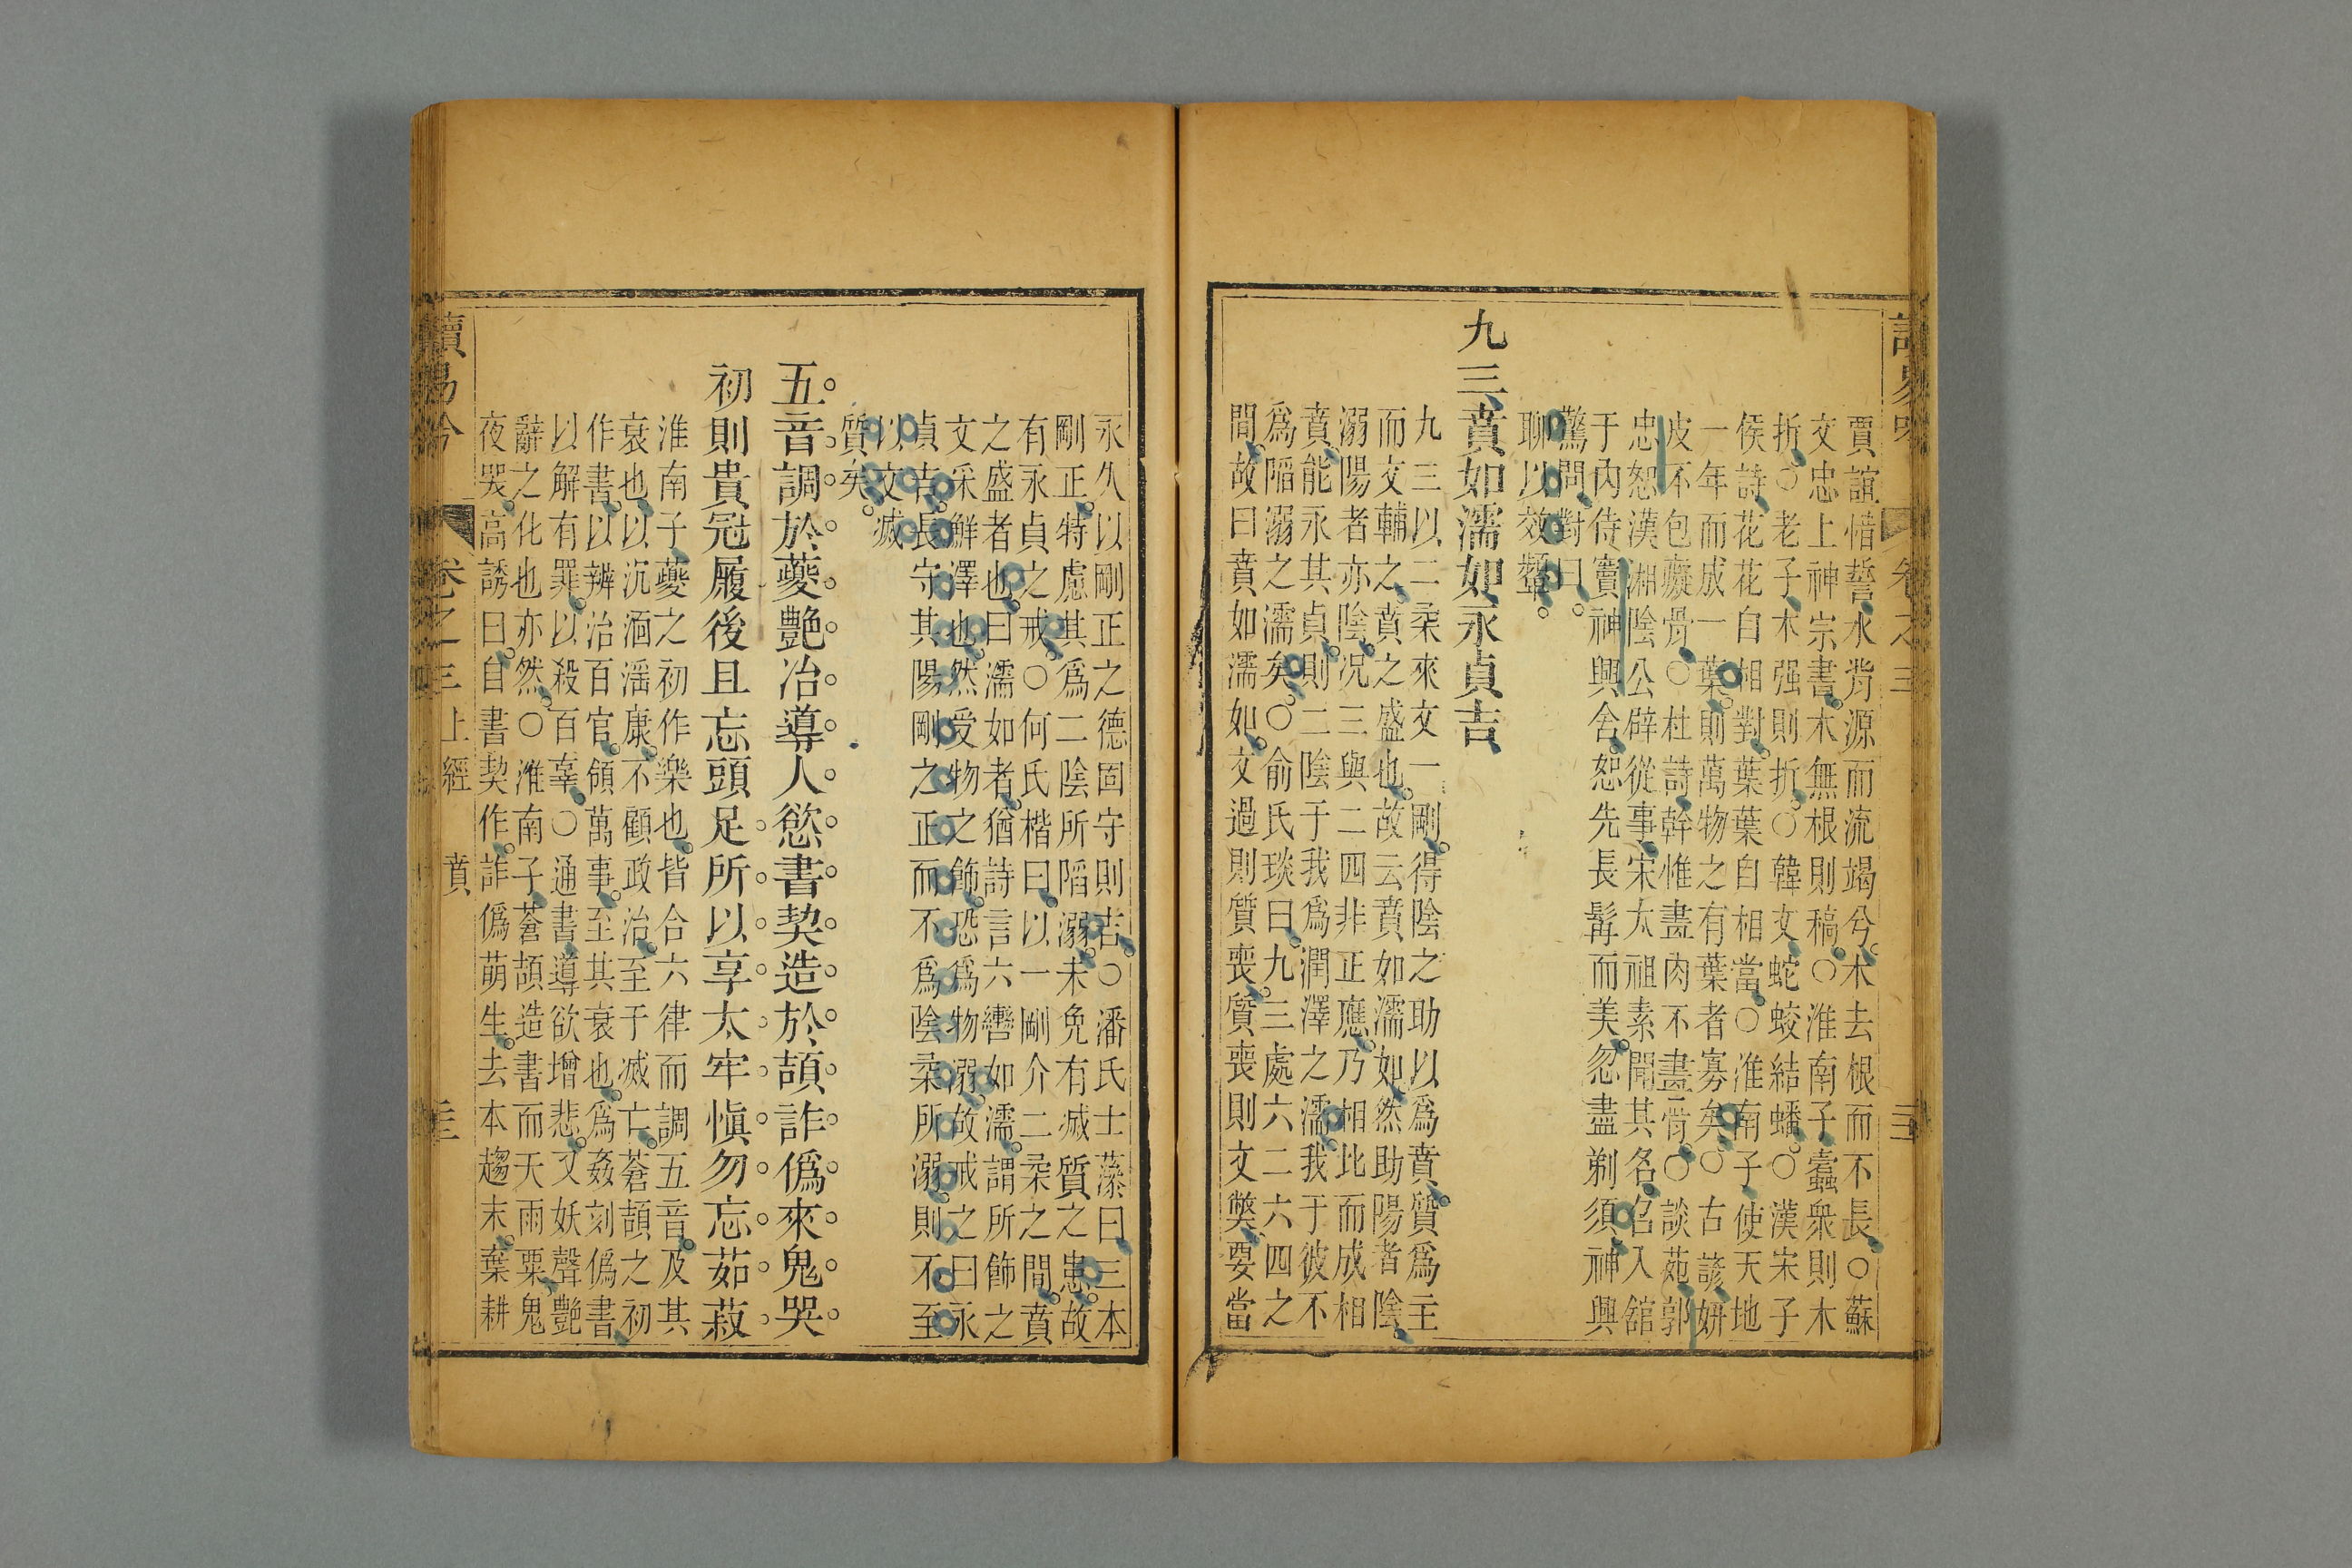 賈誼惜誓水背源而流竭兮木去根而不長○蘇
文忠上神宗書木無根則稿○淮南子蠹衆則木
折○老子木强則折○韓文蛇蛟結蟠○漢宋子
侯詩花花自相對葉葉自相當○淮南子使天地
一年而成一葉則萬物之有葉者寡矣○古諺妍
皮不包癡骨○杜詩幹惟畫肉不畫骨○談苑郭
忠恕漢湘陰公辟從事宋太祖素聞其名召入舘
于內侍竇神興舍恕先長髯而美忽盡剃須神興
驚問對曰
聊以效顰
九三賁如濡如永貞吉
九三以二柔來文一剛得陰之助以爲賁質爲主
而文輔之賁之盛也故云賁如濡如然助陽者陰
溺陽者亦陰况三與二四非正應乃相比而成相
賁能永其貞則二陰于我爲潤澤之濡我于彼不
爲陷溺之濡矣○俞氏琰曰九三處六二六四之
間故曰賁如濡如文過則質喪質喪則文獘要當
永久以剛正之德固守則吉○潘氏士藻曰三本
剛正特慮其爲二陰所陷溺未免有滅質之患故
有永貞之戒○何氏楷曰以一剛介二柔之間賁
之盛者也曰濡如者猶詩言六轡如濡謂所飾之
文采鮮澤也然受物之飾恐爲物溺故戒之曰永
貞吉長守其陽剛之正而不爲陰柔所溺則不至
以文滅
質矣
五音調於夔艷冶導人慾書契造於頡詐僞來鬼哭
初則貴冠履後且忘頭足所以享太牢愼勿忘茹菽
淮南子夔之初作樂也皆合六律而調五音及其
衰也以沉湎滛康不顧政治至于滅亡蒼頡之初
作書以辨治百官領萬事至其衰也爲姦刻僞書
以解有罪以殺百辜○通書導欲增悲又妖聲艷
辭之化也亦然○淮南子蒼頡造書而天雨粟鬼
夜哭高誘曰自書契作詐僞萌生去本趨末葉耕
讀易吟
卷之三
上經
賁